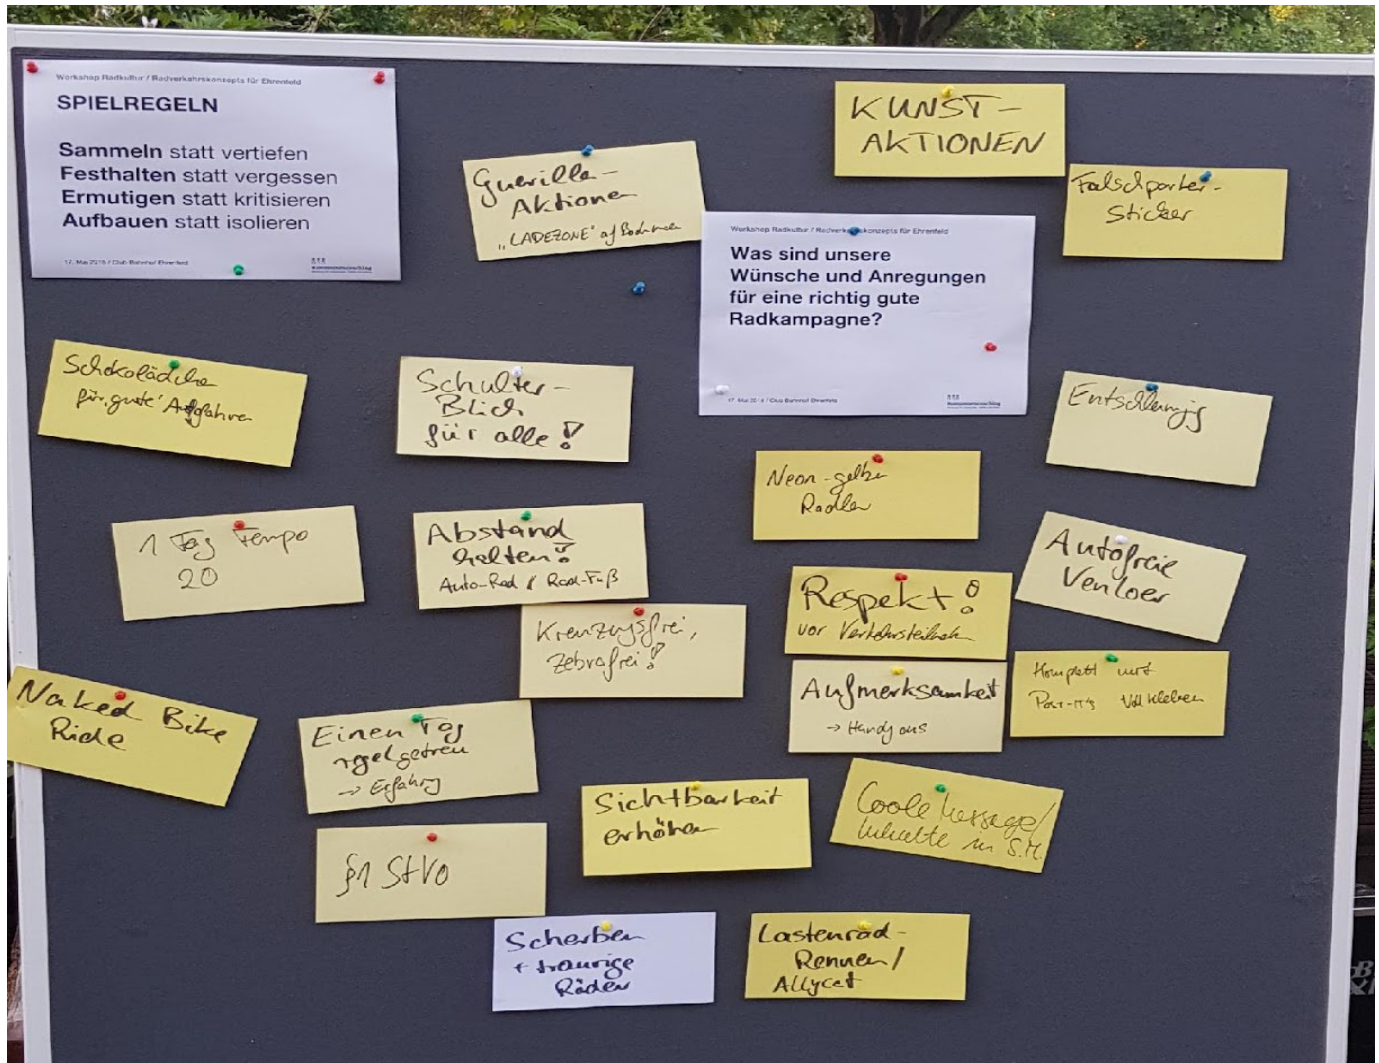 Workshop Radkultur / Radverkehrskonzepts für Ehrenfeld
SPIELREGELN
Sammeln statt vertiefen
Festhalten statt vergessen
Ermutigen statt kritisieren
Aufbauen statt isolieren
17. Mai 2018 / Club Bahnhof Ehrenfeld
Guerilla-
Aktionen
„LADEZONE"
KUNST-
AKTIONEN
Falschparker-
Sticker
Workshop Radkultur / Radverkehrskonzepts für Ehrenfeld
Was sind unsere
Wünsche und Anregungen
für eine richtig gute
Radkampagne?
17. Mai 2018 / Club Bahnhof Ehrenfeld
Schokolädche
für 'gute'
Schulter-
Blick
für alle!
Entschleunigg
Neon-gelbe
Radler
1 Tag Tempo
20
Abstand
halten!
Auto-Rad & Rad-Fuß
Autofreie
Venloer
Respekt!
vor Verkehrsteilneh
Kreuzungsfrei,
Zebrafrei!
Aufmerksamkeit
→ Handy aus
Komplett mit
Post-it's Voll kleben
Naked Bike
Ride
Einen Tag
regelgetreu
→ Erfahrg
Sichtbarkeit
erhöhen
Coole Message/
Inhalte in S.M.
§1 StVO
Scherben
+ traurige
Räder
Lastenrad-
Rennen/
Allycat